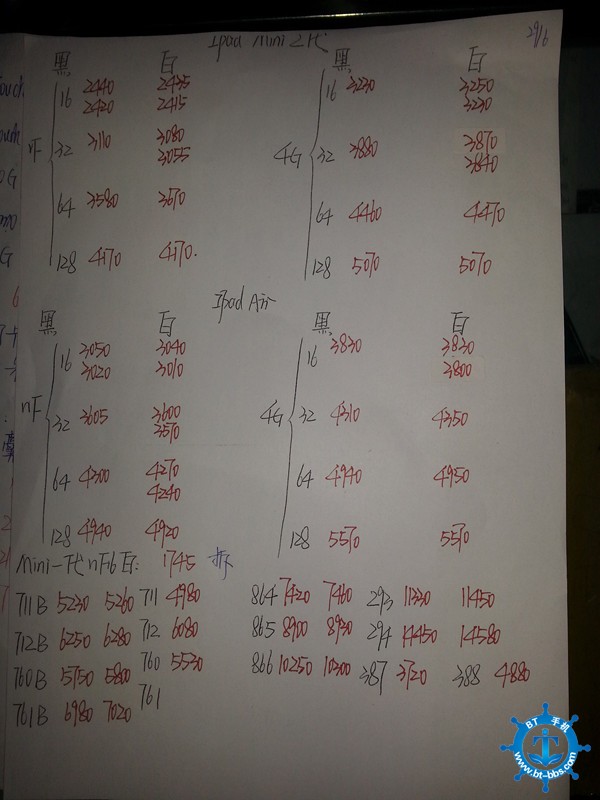 29/6
Ipad Mini 2代
黑 白 黑 白
nF 16 2440 2435 4G 16 3230 3250
2420 2415 3230
32 3110 3080 32 3880 3870
3055 3840
64 3580 3670 64 4460 4470
128 4170 4170. 128 5070 5070
Ipad Air
黑 白 黑 白
nF 16 3050 3040 4G 16 3830 3830
3020 3010 3800
32 3605 3600 32 4310 4350
3570
64 4300 4270 64 4940 4950
4240
128 4940 4920 128 5570 5570
Mini一代nF16白: 1745
711B 5230 5260 711 4980 864 7420 7460 293 11330 11450
712B 6250 6280 712 6080 865 8900 8930 294 14450 14580
760B 5750 5800 760 5530 866 10250 10300 387 3720 388 4880
761B 6980 7020 761
BT 手机
www.bt-bbs.com